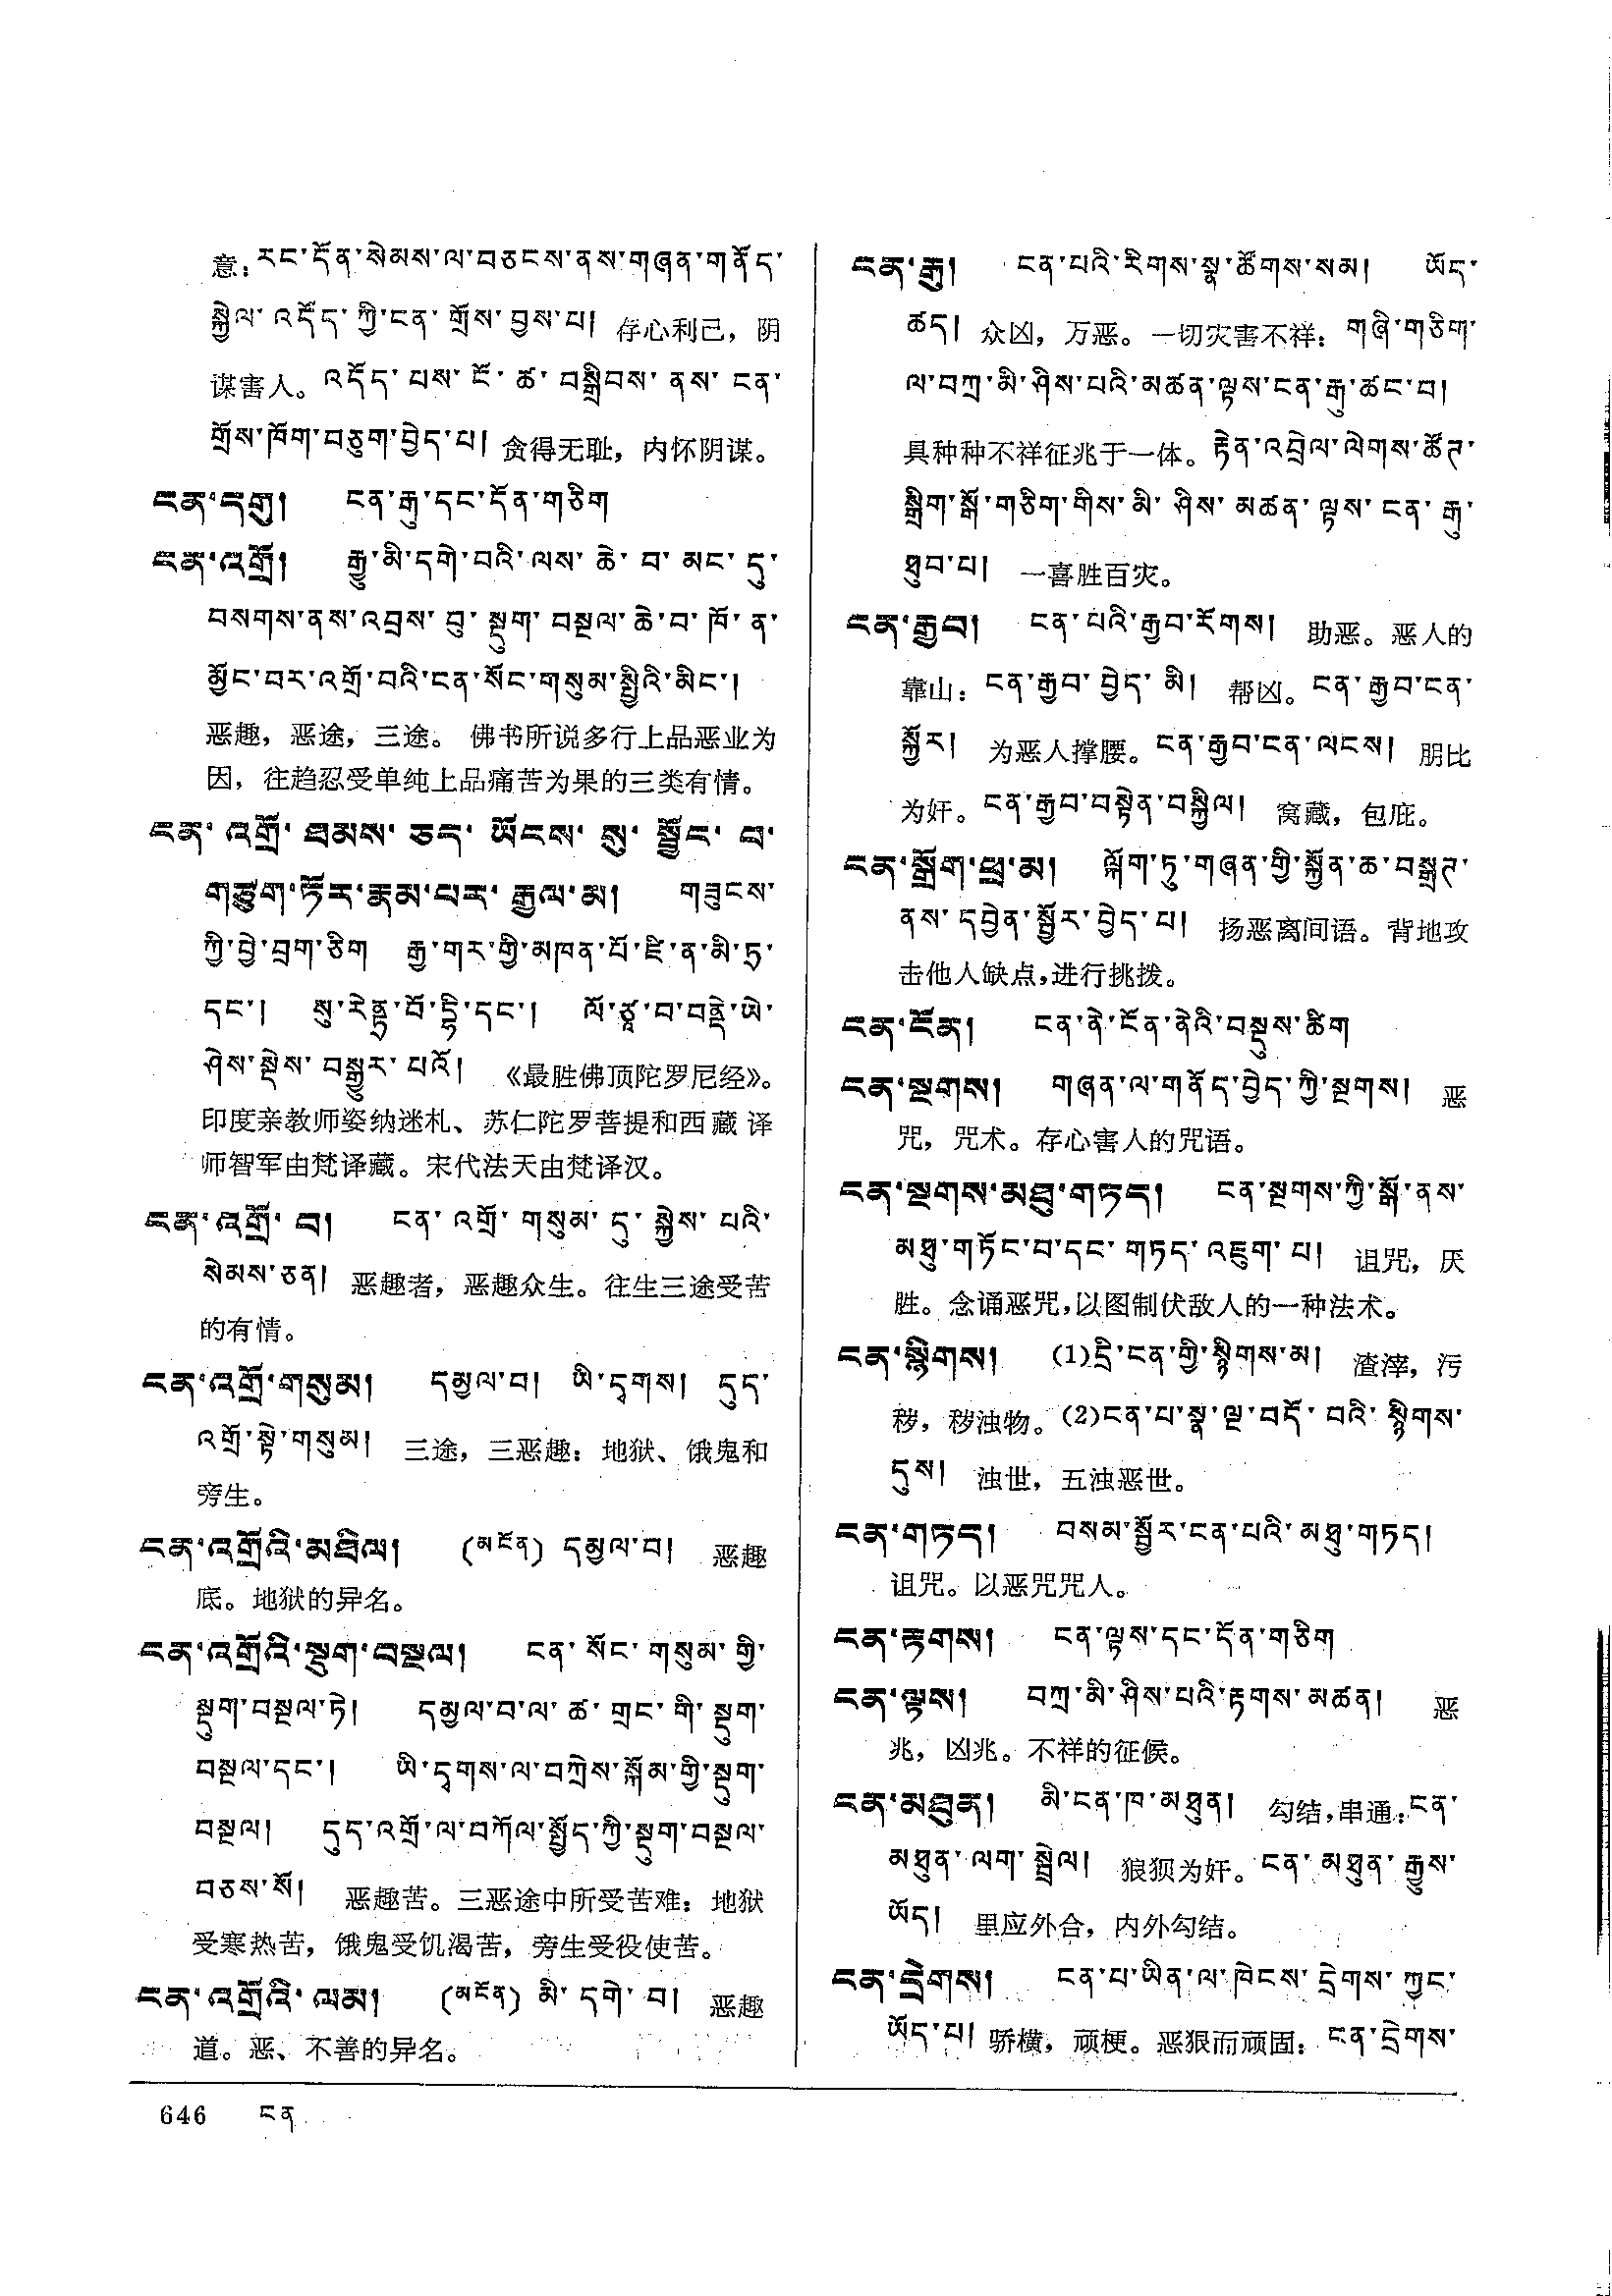 意：རང་དོན་སེམས་ལ་བཅངས་ནས་གཞན་གནོད་
སྐྱེལ་འདོད་ཀྱི་ངན་གྲོས་བྱས་པ། 存心利己，阴
谋害人。འདོད་པས་ངོ་ཚ་བསྒྲིབས་ནས་ངན་
གྲོས་ཁོག་བཅུག་བྱེད་པ། 贪得无耻，内怀阴谋。
ངན་དགུ། ངན་རྒུ་དང་དོན་གཅིག
ངན་འགྲོ། རྒྱུ་མི་དགེ་བའི་ལས་ཆེ་བ་མང་དུ་
བསགས་ནས་འབྲས་བུ་སྡུག་བསྔལ་ཆེ་བ་ཁོ་ན་
མྱོང་བར་འགྲོ་བའི་ངན་སོང་གསུམ་སྤྱིའི་མིང་།
恶趣，恶途，三途。佛书所说多行上品恶业为
因，往趋忍受单纯上品痛苦为果的三类有情。
ངན་འགྲོ་ཐམས་ཅད་ཡོངས་སུ་སྦྱོང་བ་
གཙུག་ཏོར་རྣམ་པར་རྒྱལ་མ། གཟུངས་
ཀྱི་བྱེ་བྲག་ཅིག རྒྱ་གར་གྱི་མཁན་པོ་ཛི་ན་མི་ཏྲ་
དང་། སུ་རེནྡྲ་བོ་དྷི་དང་། ལོ་ཙཱ་བ་བནྡེ་ཡེ་
ཤེས་སྡེས་བསྒྱུར་པའོ། 《最胜佛顶陀罗尼经》。
印度亲教师姿纳迷札、苏仁陀罗菩提和西藏译
师智军由梵译藏。宋代法天由梵译汉。
ངན་འགྲོ་བ། ངན་འགྲོ་གསུམ་དུ་སྐྱེས་པའི་
སེམས་ཅན། 恶趣者，恶趣众生。往生三途受苦
的有情。
ངན་འགྲོ་གསུམ། དམྱལ་བ། ཡི་དྭགས། དུད་
འགྲོ་སྟེ་གསུམ། 三途，三恶趣：地狱、饿鬼和
旁生。
ངན་འགྲོའི་མཐིལ། (མངོན) དམྱལ་བ། 恶趣
底。地狱的异名。
ངན་འགྲོའི་སྡུག་བསྔལ། ངན་སོང་གསུམ་གྱི་
སྡུག་བསྔལ་ཏེ། དམྱལ་བ་ལ་ཚ་གྲང་གི་སྡུག་
བསྔལ་དང་། ཡི་དྭགས་ལ་བཀྲེས་སྐོམ་གྱི་སྡུག་
བསྔལ། དུད་འགྲོ་ལ་བཀོལ་སྤྱོད་ཀྱི་སྡུག་བསྔལ་
བཅས་སོ། 恶趣苦。三恶途中所受苦难：地狱
受寒热苦，饿鬼受饥渴苦，旁生受役使苦。
ངན་འགྲོའི་ལམ། (མངོན) མི་དགེ་བ། 恶趣
道。恶、不善的异名。
ངན་རྒུ། ངན་པའི་རིགས་སྣ་ཚོགས་སམ། ཡོད་
ཚད། 众凶，万恶。一切灾害不祥：གཞི་གཅིག་
ལ་བཀྲ་མི་ཤིས་པའི་མཚན་ལྟས་ངན་རྒུ་ཚང་བ།
具种种不祥征兆于一体。རྟེན་འབྲེལ་ལེགས་ཚོཊ་
སྒྲིག་སྒོ་གཅིག་གིས་མི་ཤིས་མཚན་ལྟས་ངན་རྒུ་
ཐུབ་པ། 一喜胜百灾。
ངན་རྒྱབ། ངན་པའི་རྒྱབ་རོགས། 助恶。恶人的
靠山：ངན་རྒྱབ་བྱེད་མི། 帮凶。ངན་རྒྱབ་ངན་
སྐྱོར། 为恶人撑腰。ངན་རྒྱབ་ངན་ལངས། 朋比
为奸。ངན་རྒྱབ་བསྟེན་བསྐྱིལ། 窝藏，包庇。
ངན་སྒྲོག་ཕྲ་མ། ལྐོག་ཏུ་གཞན་གྱི་སྐྱོན་ཆ་བསྒྲཊ་
ནས་དབྱེན་སྦྱོར་བྱེད་པ། 扬恶离间语。背地攻
击他人缺点，进行挑拨。
ངན་ངོན། ངན་ནེ་ངོན་ནེའི་བསྡུས་ཚིག
ངན་སྔགས། གཞན་ལ་གནོད་བྱེད་ཀྱི་སྔགས། 恶
咒，咒术。存心害人的咒语。
ངན་སྔགས་མཐུ་གཏད། ངན་སྔགས་ཀྱི་སྒོ་ནས་
མཐུ་གཏོང་བ་དང་གཏད་འཇུག་པ། 诅咒，厌
胜。念诵恶咒，以图制伏敌人的一种法术。
ངན་སྙིགས། (1)དྲི་ངན་གྱི་སྙིགས་མ། 渣滓，污
秽，秽浊物。(2)ངན་པ་སྣ་ལྔ་བདོ་བའི་སྙིགས་
དུས། 浊世，五浊恶世。
ངན་གཏད། བསམ་སྦྱོར་ངན་པའི་མཐུ་གཏད།
诅咒。以恶咒咒人。
ངན་རྟགས། ངན་ལྟས་དང་དོན་གཅིག
ངན་ལྟས། བཀྲ་མི་ཤིས་པའི་རྟགས་མཚན། 恶
兆，凶兆。不祥的征候。
ངན་མཐུན། མི་ངན་ཁ་མཐུན། 勾结，串通：ངན་
མཐུན་ལག་སྦྲེལ། 狼狈为奸。ངན་མཐུན་རྒྱུས་
ཡོད། 里应外合，内外勾结。
ངན་དྲེགས། ངན་པ་ཡིན་ལ་ཁེངས་དྲེགས་ཀྱང་
ཡོད་པ། 骄横，顽梗。恶狠而顽固：ངན་དྲེགས་
646 ངན